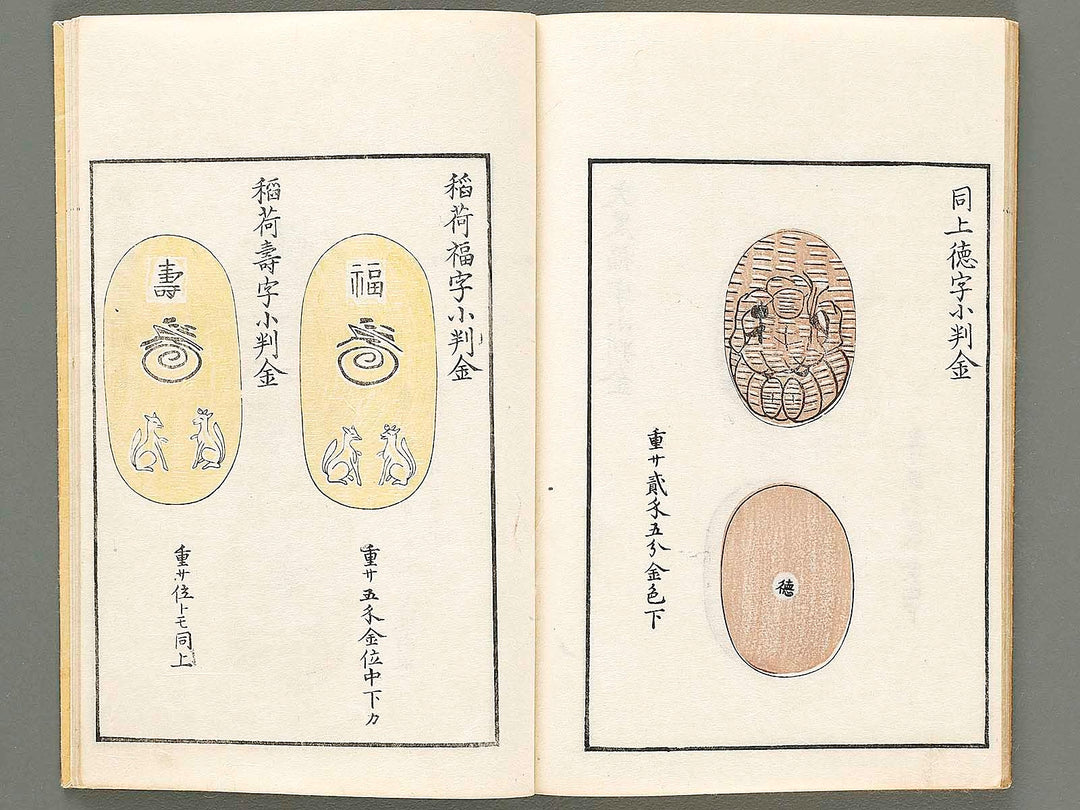 同上徳字小判金
徳
重サ貳匁五分金色下
稲荷福字小判金
福
重サ五匁金位中下カ
稲荷壽字小判金
壽
重サ位トモ同上